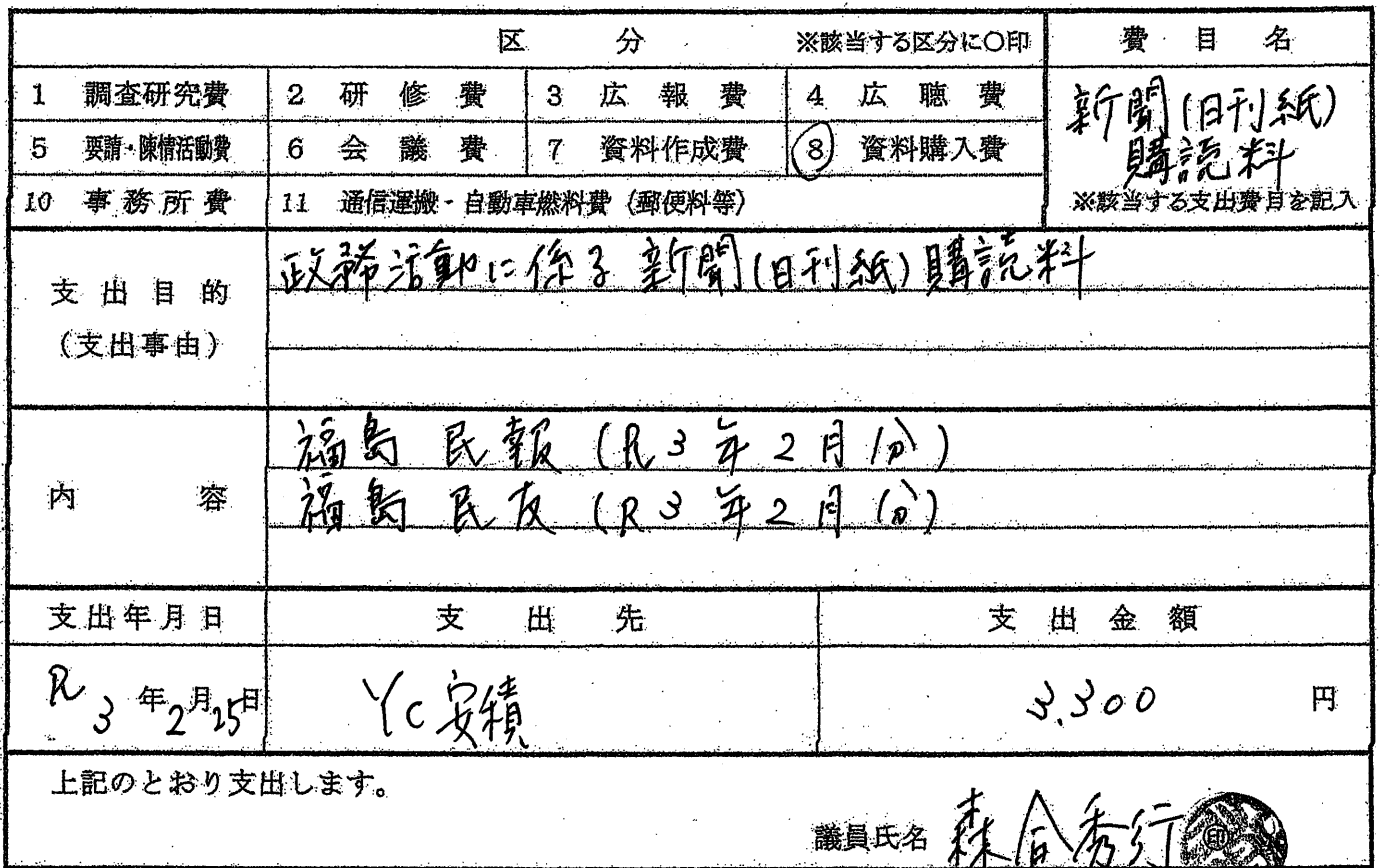 区 分 ※該当する区分に○印 費目名
1 調査研究費 2 研修費 3 広報費 4 広聴費
5 要請・陳情活動費 6 会議費 7 資料作成費 8 資料購入費
10 事務所費 11 通信運搬・自動車燃料費（郵便料等）
新聞(日刊紙)
購読料
※該当する支出費目を記入
支出目的
（支出事由）
政務活動に係る新聞(日刊紙)購読料
内容
福島民報(R3年2月分)
福島民友(R3年2月分)
支出年月日 支出先 支出金額
R3年2月25日 YC安積 3,300 円
上記のとおり支出します。
議員氏名 森合秀行 印